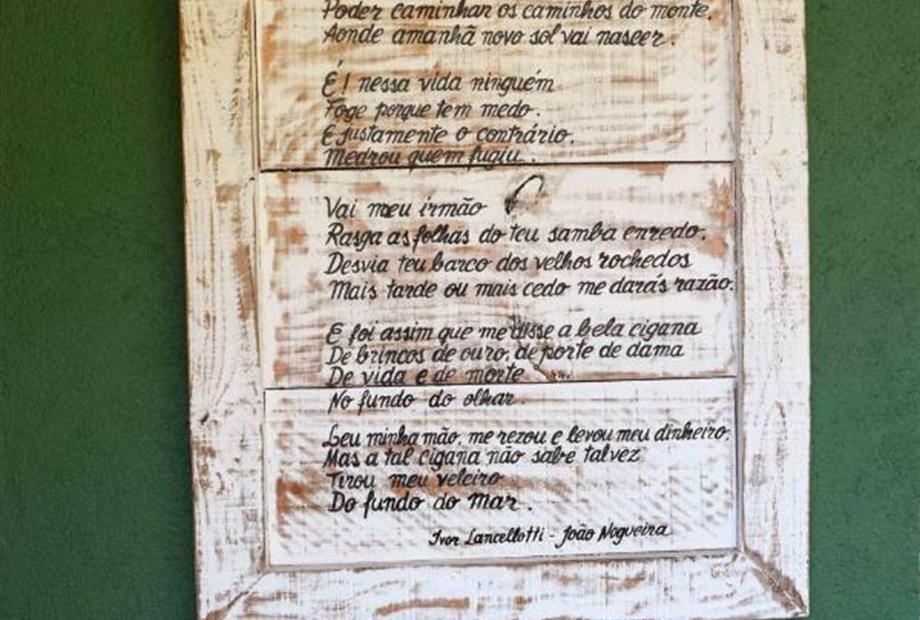 Poder caminhar os caminhos do monte,
Aonde amanhã novo sol vai nascer.
É! nessa vida ninguém
Foge porque tem medo.
E justamente o contrário.
Medrou quem fugiu.
Vai meu irmão
Rasga as folhas do teu samba enredo.
Desvia teu barco dos velhos rochedos
Mais tarde ou mais cedo me darás razão.
E foi assim que me disse a bela cigana
De brincos de ouro, de porte de dama
De vida e de morte
No fundo do olhar
Leu minha mão, me rezou e levou meu dinheiro.
Mas a tal cigana não sabe talvez
Tirou meu veleiro
Do fundo do mar.
Ivor Lancellotti - João Nogueira